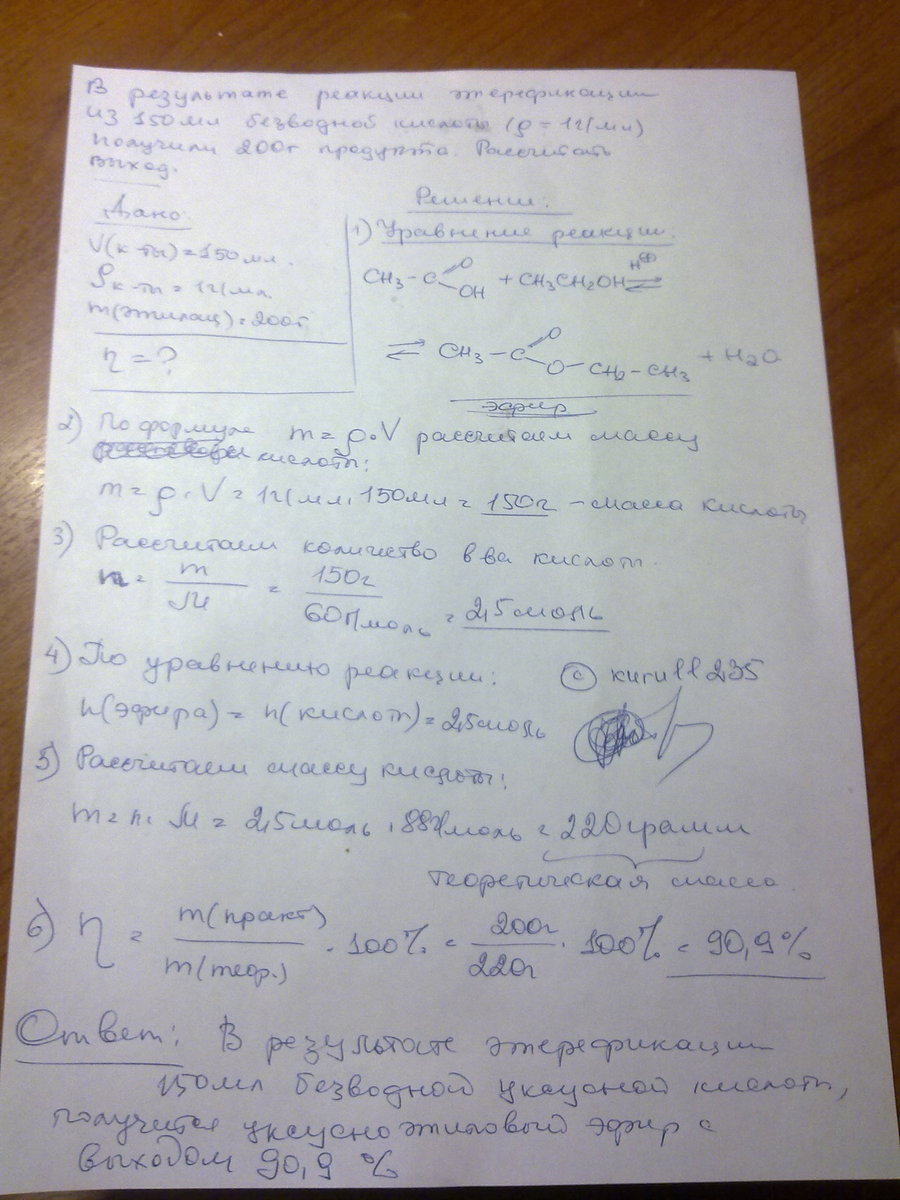 В результате реакции этерефикации
из 150мл безводной кислоты (ρ = 1г/мл)
получили 200г продукта. Рассчитать
выход.
Дано
V(к-ты) = 150мл.
ρк-ты = 1г/мл.
m(этилац) = 200г
η = ?
Решение:
1) Уравнение реакции:
CH3-C O OH + CH3CH2OH H⊕ ⇌
⇌ CH3-C O O-CH2-CH3 + H2O
эфир
2) По формуле m = ρ·V рассчитаем массу
кислоты:
m = ρ·V = 1г/мл·150мл = 150г - масса кислоты
3) Рассчитаем количество в ва кислот.
n = m/M = 150г/60г/моль = 2,5моль
4) По уравнению реакции:
© kirill235
n(эфира) = n(кислот) = 2,5моль
5) Рассчитаем массу кислоты:
m = n·M = 2,5моль·88г/моль = 220грамм
теоретическая масса.
6) η = m(практ)/m(теор.) · 100% = 200г/220г · 100% = 90,9%
Ответ: В результате этерефикации
150мл безводной уксусной кислоты,
получится уксусноэтиловый эфир с
выходом 90,9 %